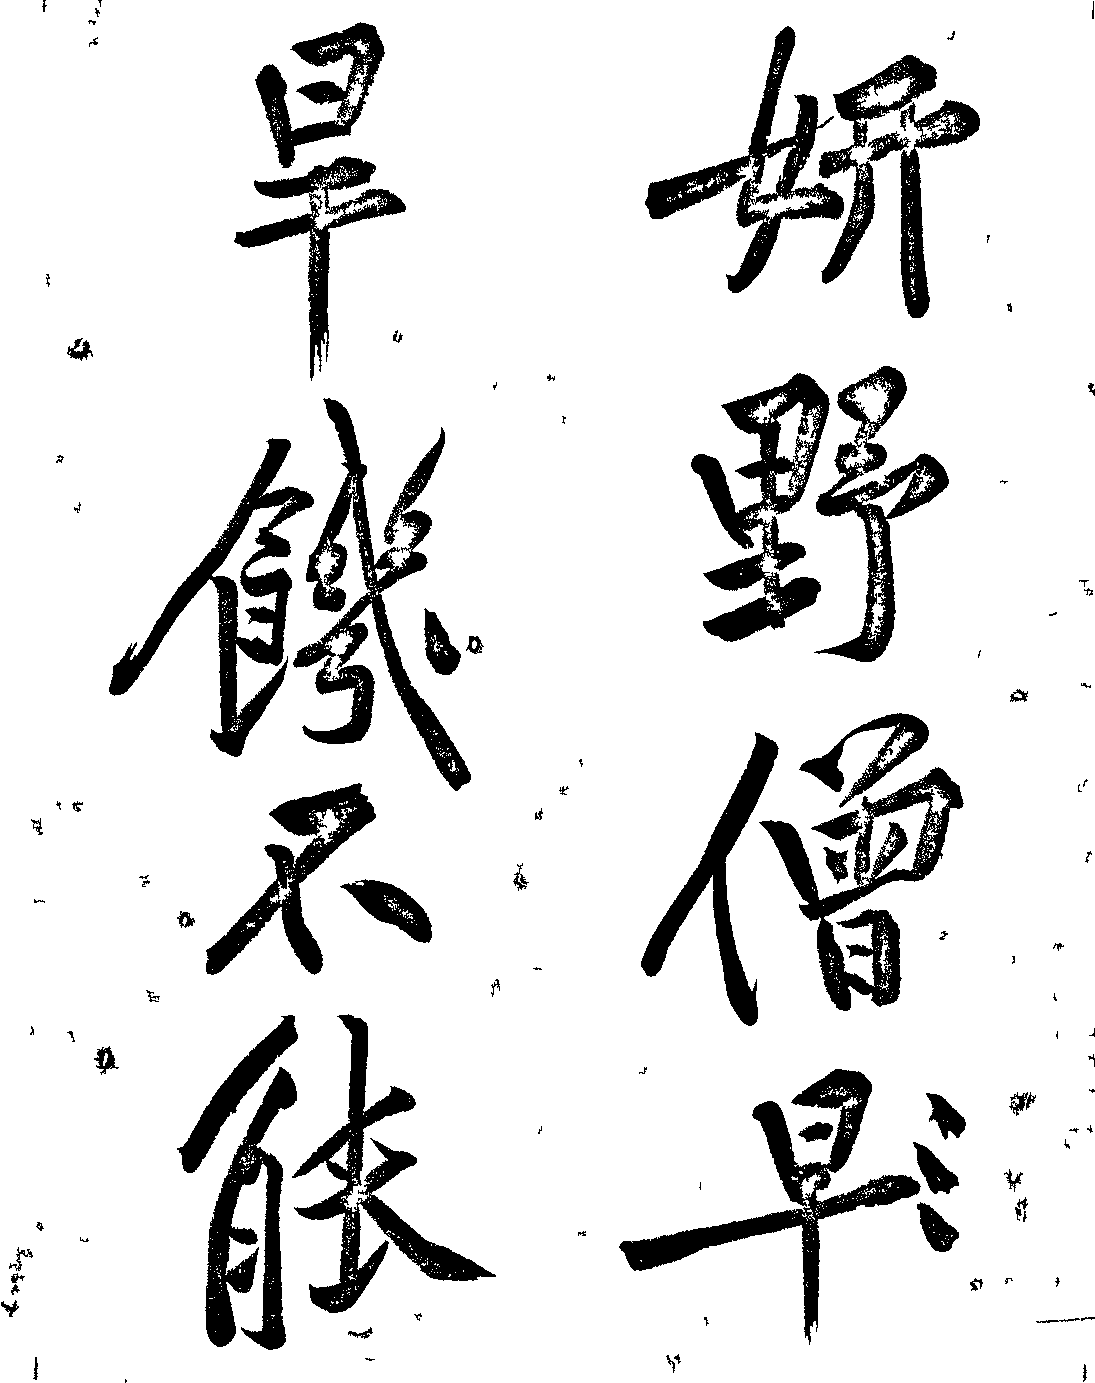 妍野僧早
旱饑不能